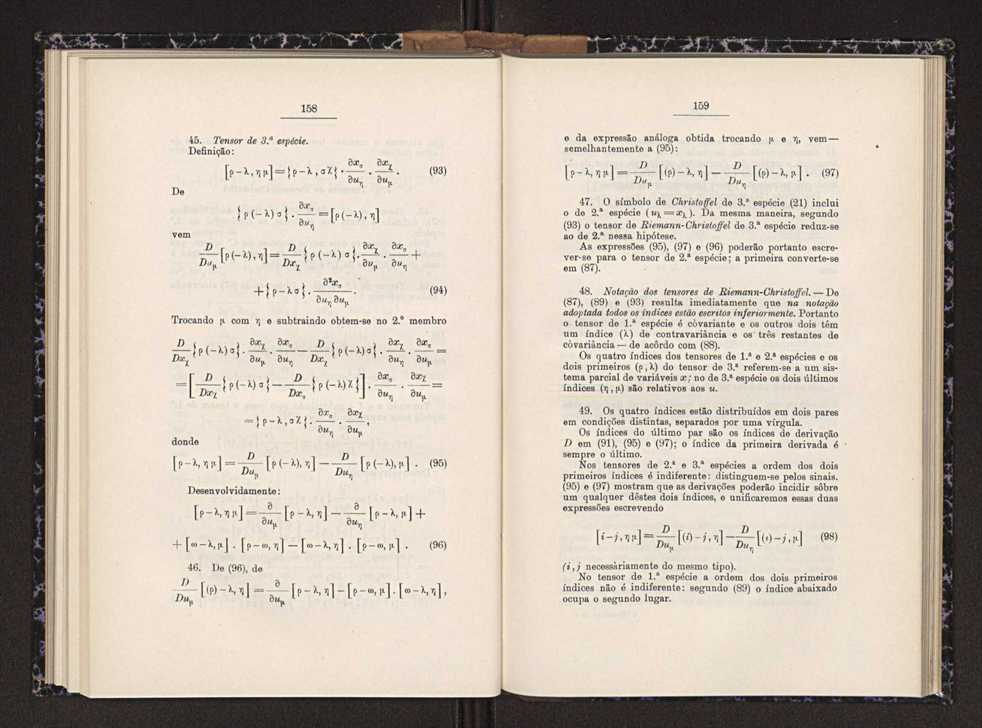 158
45. Tensor de 3.ª espécie.
Definição:
[ρ−λ, ημ] = {ρ−λ, σχ} · ∂xσ/∂uη · ∂xχ/∂uμ . (93)
De
{ρ(−λ)σ} · ∂xσ/∂uη = [ρ(−λ), η]
vem
D/Duμ [ρ(−λ), η] = D/Dxχ {ρ(−λ)σ} · ∂xχ/∂uμ · ∂xσ/∂uη +
+ {ρ−λσ} · ∂²xσ/∂uη ∂uμ . (94)
Trocando μ com η e subtraindo obtem-se no 2.º membro
D/Dxχ {ρ(−λ)σ} · ∂xχ/∂uμ · ∂xσ/∂uη − D/Dxχ {ρ(−λ)σ} · ∂xχ/∂uη · ∂xσ/∂uμ =
= [D/Dxχ {ρ(−λ)σ} − D/Dxσ {ρ(−λ)χ}] · ∂xσ/∂uη · ∂xχ/∂uμ =
= {ρ−λ, σχ} · ∂xσ/∂uη · ∂xχ/∂uμ ,
donde
[ρ−λ, ημ] = D/Duμ [ρ(−λ), η] − D/Duη [ρ(−λ), μ] . (95)
Desenvolvidamente:
[ρ−λ, ημ] = ∂/∂uμ [ρ−λ, η] − ∂/∂uη [ρ−λ, μ] +
+ [ω−λ, μ] . [ρ−ω, η] − [ω−λ, η] . [ρ−ω, μ] . (96)
46. De (96), de
D/Duμ [(ρ)−λ, η] = ∂/∂uμ [ρ−λ, η] − [ρ−ω, μ] . [ω−λ, η] ,
159
e da expressão análoga obtida trocando μ e η, vem—
semelhantemente a (95):
[ρ−λ, ημ] = D/Duμ [(ρ)−λ, η] − D/Duη [(ρ)−λ, μ] . (97)
47. O símbolo de Christoffel de 3.ª espécie (21) inclui
o de 2.ª espécie (uλ = xλ). Da mesma maneira, segundo
(93) o tensor de Riemann-Christoffel de 3.ª espécie reduz-se
ao de 2.ª nessa hipótese.
As expressões (95), (97) e (96) poderão portanto escre-
ver-se para o tensor de 2.ª espécie; a primeira converte-se
em (87).
48. Notação dos tensores de Riemann-Christoffel. — De
(87), (89) e (93) resulta imediatamente que na notação
adoptada todos os índices estão escritos inferiormente. Portanto
o tensor de 1.ª espécie é còvariante e os outros dois têm
um índice (λ) de contravariância e os três restantes de
còvariância — de acôrdo com (88).
Os quatro índices dos tensores de 1.ª e 2.ª espécies e os
dois primeiros (ρ, λ) do tensor de 3.ª referem-se a um sis-
tema parcial de variáveis x; no de 3.ª espécie os dois últimos
índices (η, μ) são relativos aos u.
49. Os quatro índices estão distribuídos em dois pares
em condições distintas, separados por uma vírgula.
Os índices do último par são os índices de derivação
D em (91), (95) e (97); o índice da primeira derivada é
sempre o último.
Nos tensores de 2.ª e 3.ª espécies a ordem dos dois
primeiros índices é indiferente: distinguem-se pelos sinais.
(95) e (97) mostram que as derivações poderão incidir sôbre
um qualquer dêstes dois índices, e unificaremos essas duas
expressões escrevendo
[i−j, ημ] = D/Duμ [(i)−j, η] − D/Duη [(i)−j, μ] (98)
(i, j necessàriamente do mesmo tipo).
No tensor de 1.ª espécie a ordem dos dois primeiros
índices não é indiferente: segundo (89) o índice abaixado
ocupa o segundo lugar.